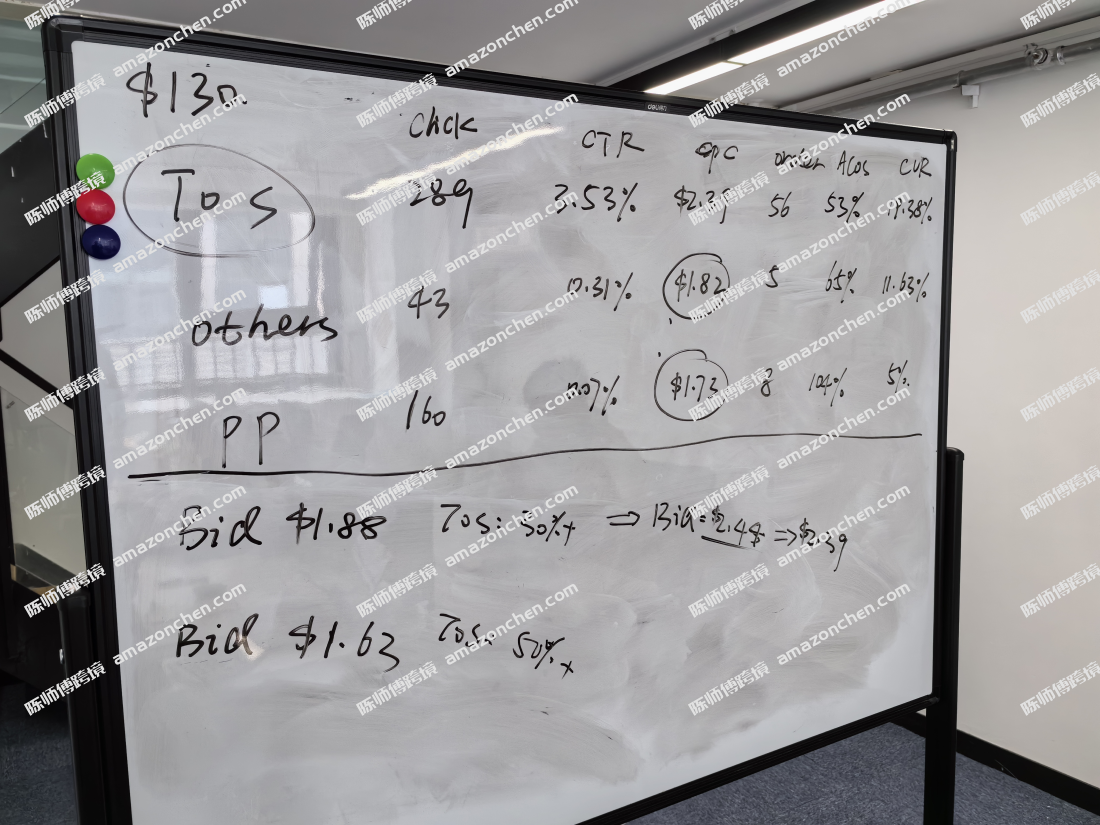 $130
Click CTR cpc order Acos CVR
Tos 289 3.53% $2.39 56 53% 19.38%
others 43 0.31% $1.82 5 65% 11.63%
PP 160 0.07% $1.73 8 104% 5%
Bid $1.88 Tos: 30%+ ⇒ Bid: $2.4$ ⇒ $2.39
Bid $1.63 Tos: 50%+
deli
陈师傅跨境 amazonchen.com